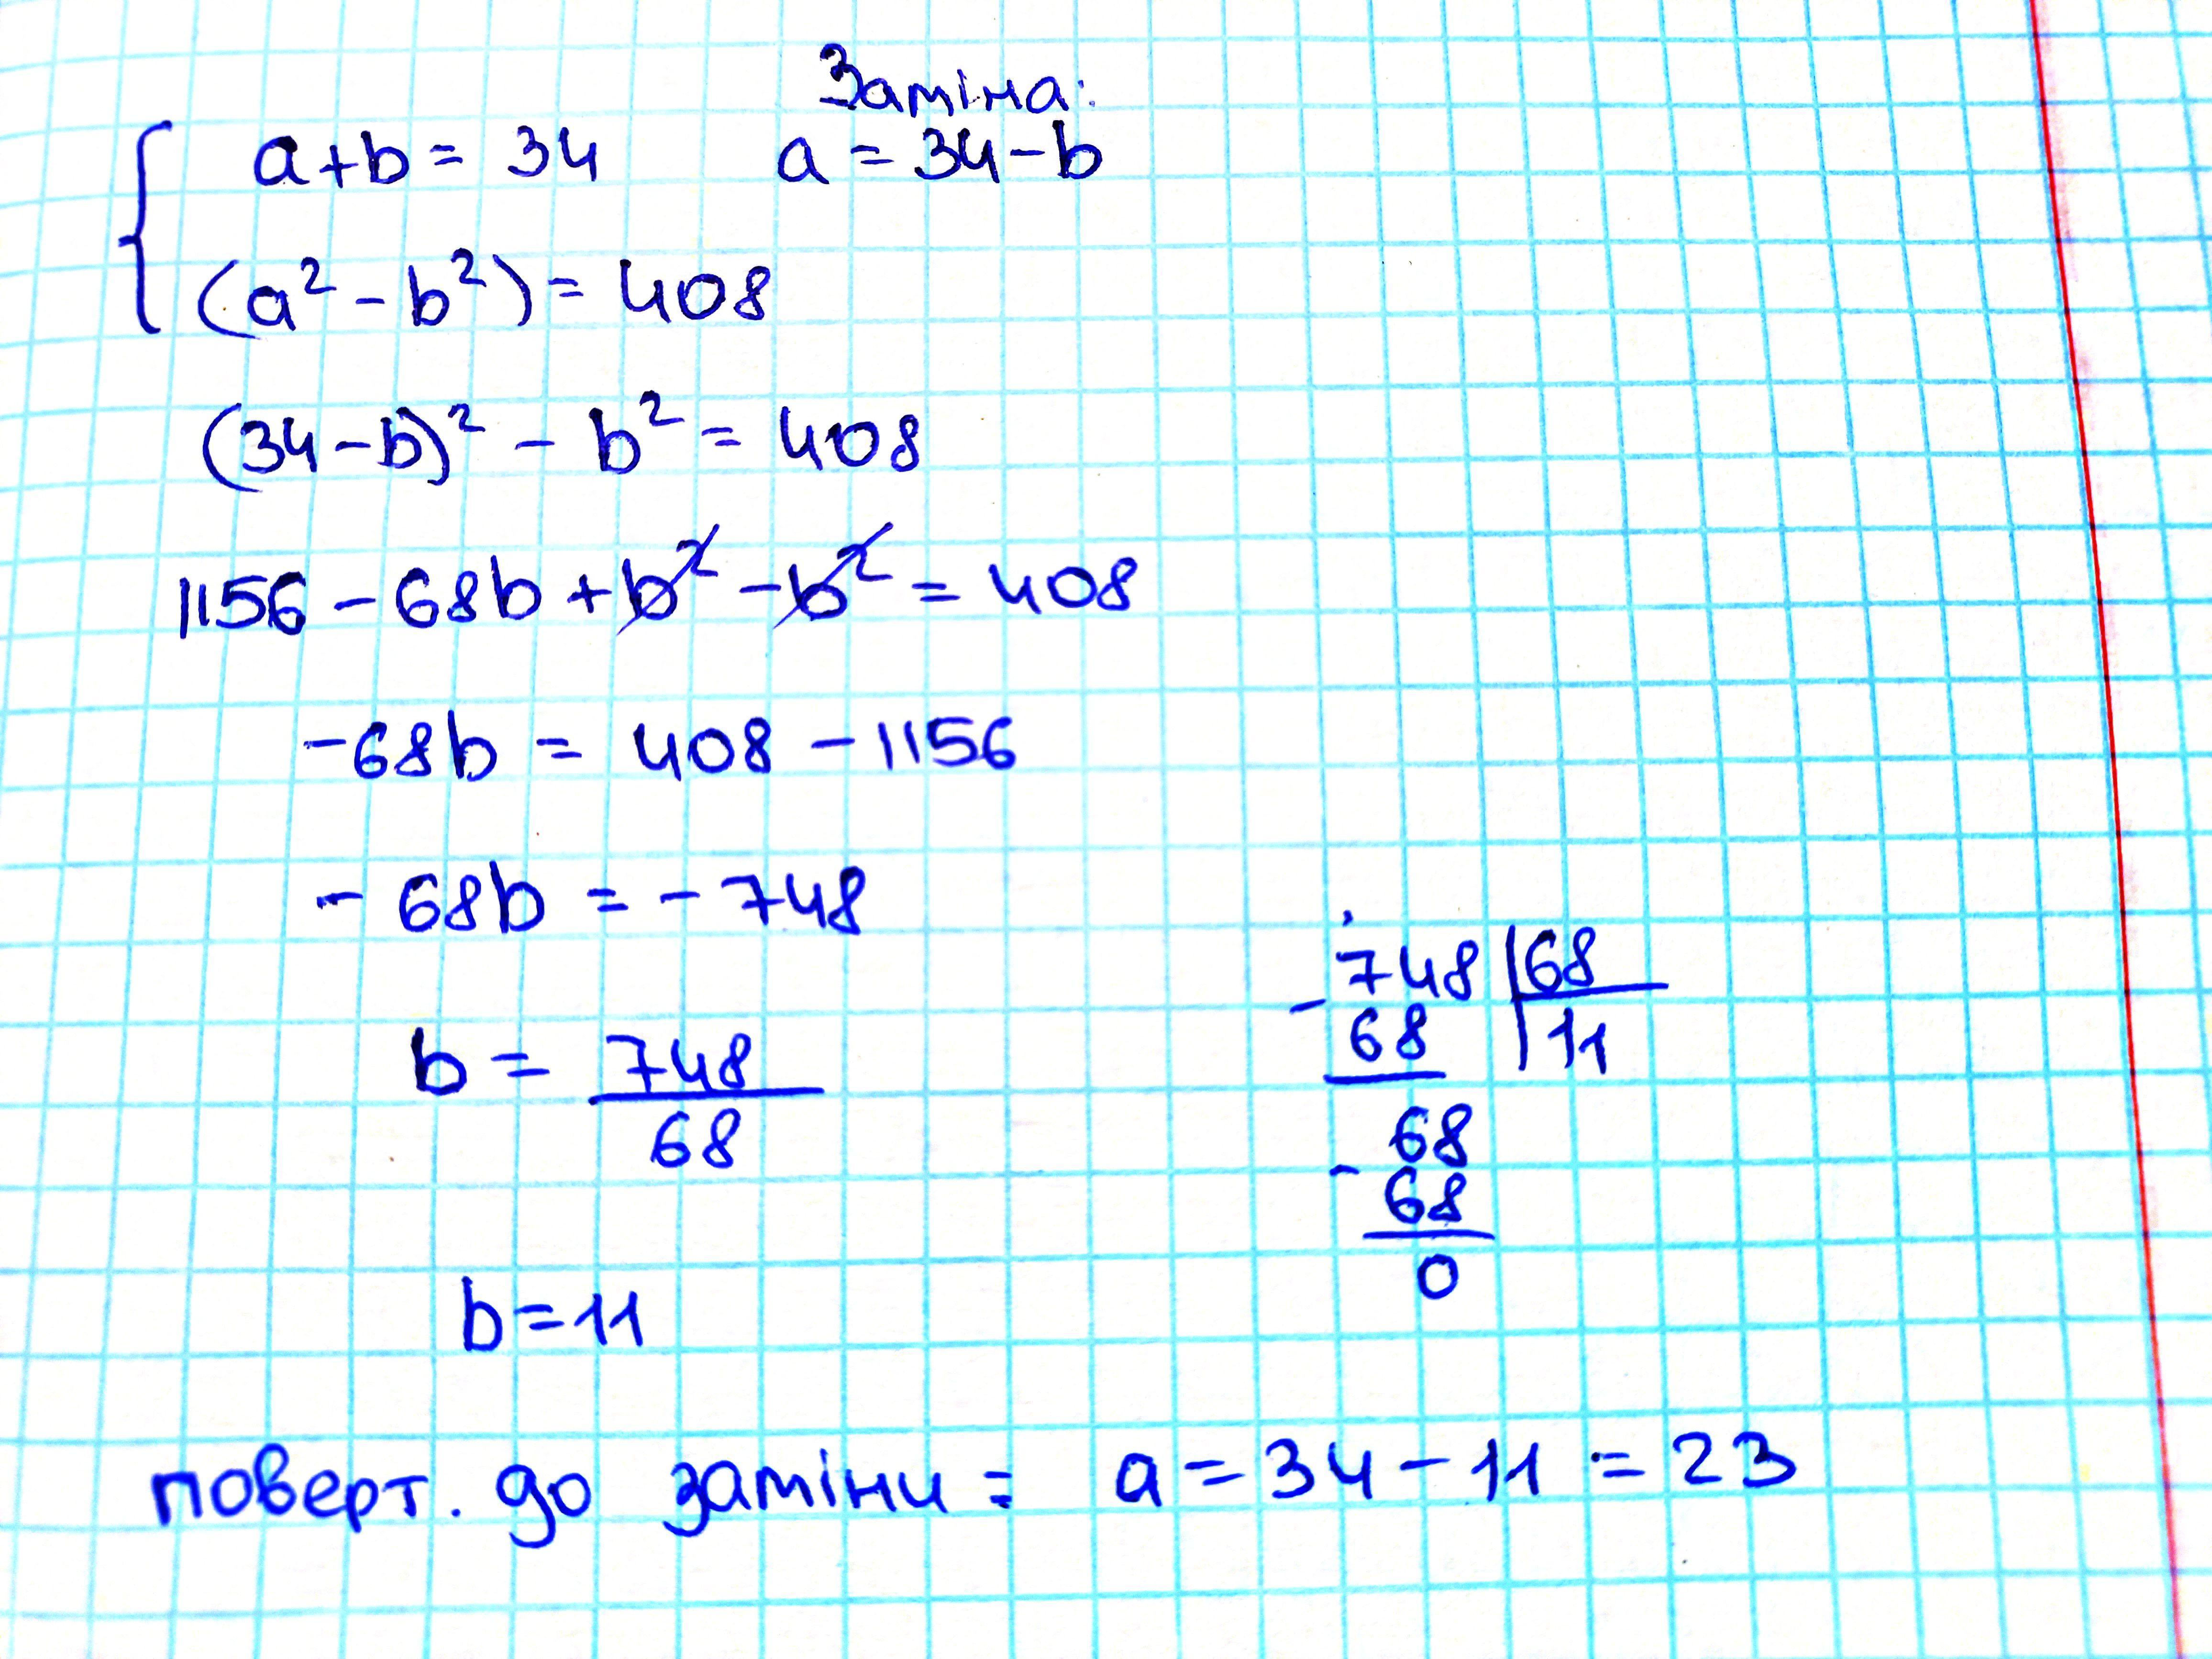 Заміна:
a+b = 34 a = 34-b
(a² - b²) = 408
(34-b)² - b² = 408
1156 - 68b + b² - b² = 408
-68b = 408 - 1156
- 68b = - 748
748 68
- 68 11
b = 748
68
68
- 68
0
b = 11
поверт. до заміни = a = 34 - 11 = 23